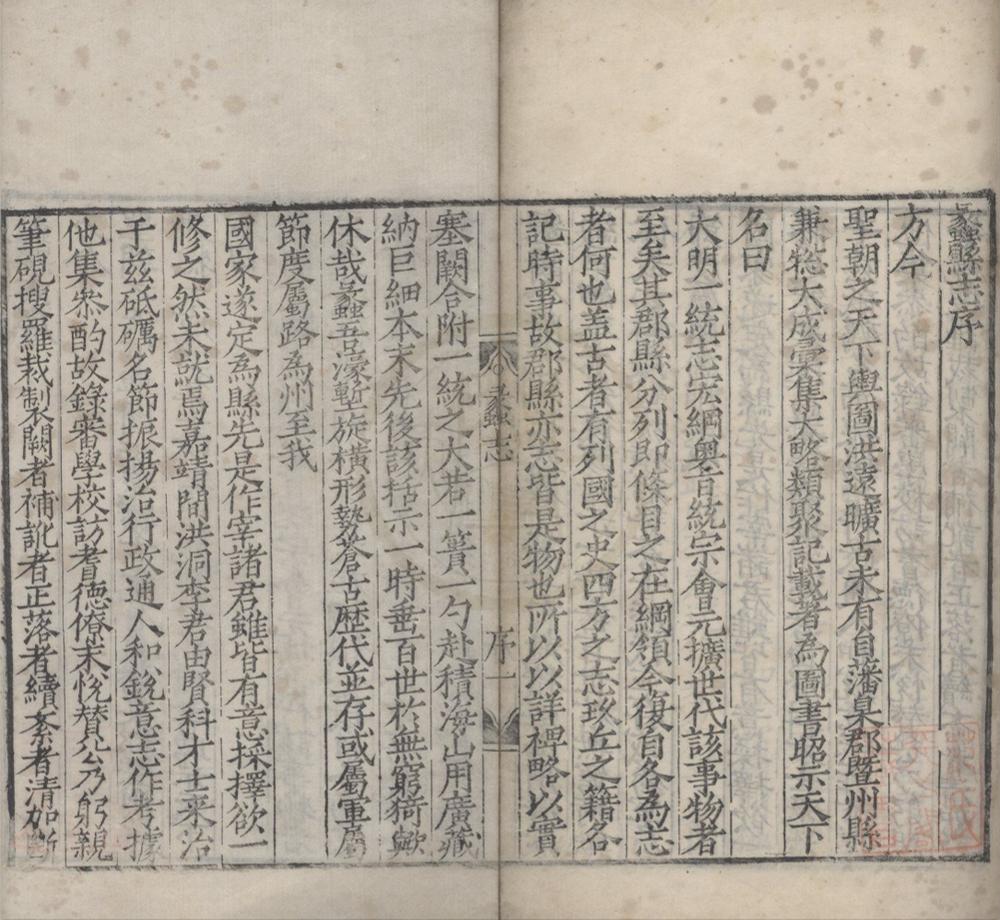 蠡縣志序
方今
聖朝之天下輿圖洪遠曠古未有自藩臬郡暨州縣
兼総大成彙集大略類聚記載著為圖書昭示天下
名曰
大明一統志宏綱奧旨統宗會元擴世代該事物者
至矣其郡縣分列即條目之在綱領今復自各為志
者何也盖古者有列國之史四方之志玖丘之籍名
記時事故郡縣亦志皆是物也所以以詳裨略以實
蠡志
序一
塞闕合附一統之大若一簣一勺赴積海山用廣藏
納巨細本末先後該括示一時垂百世於無窮猗歟
休哉蠡吾濠塹旋橫形勢蒼古歴代並存或屬軍屬
節度屬路為州至我
國家遂定為縣先是作宰諸君雖皆有意採擇欲一
修之然未就焉嘉靖間洪洞李君由賢科才士来治
于茲砥礪名節振揚治行政通人和銳意志作考據
他集叅酌故錄審學校訪耆德僚末悅賛公乃躬親
筆硯搜羅裁製闕者補訛者正落者續紊者清加斷